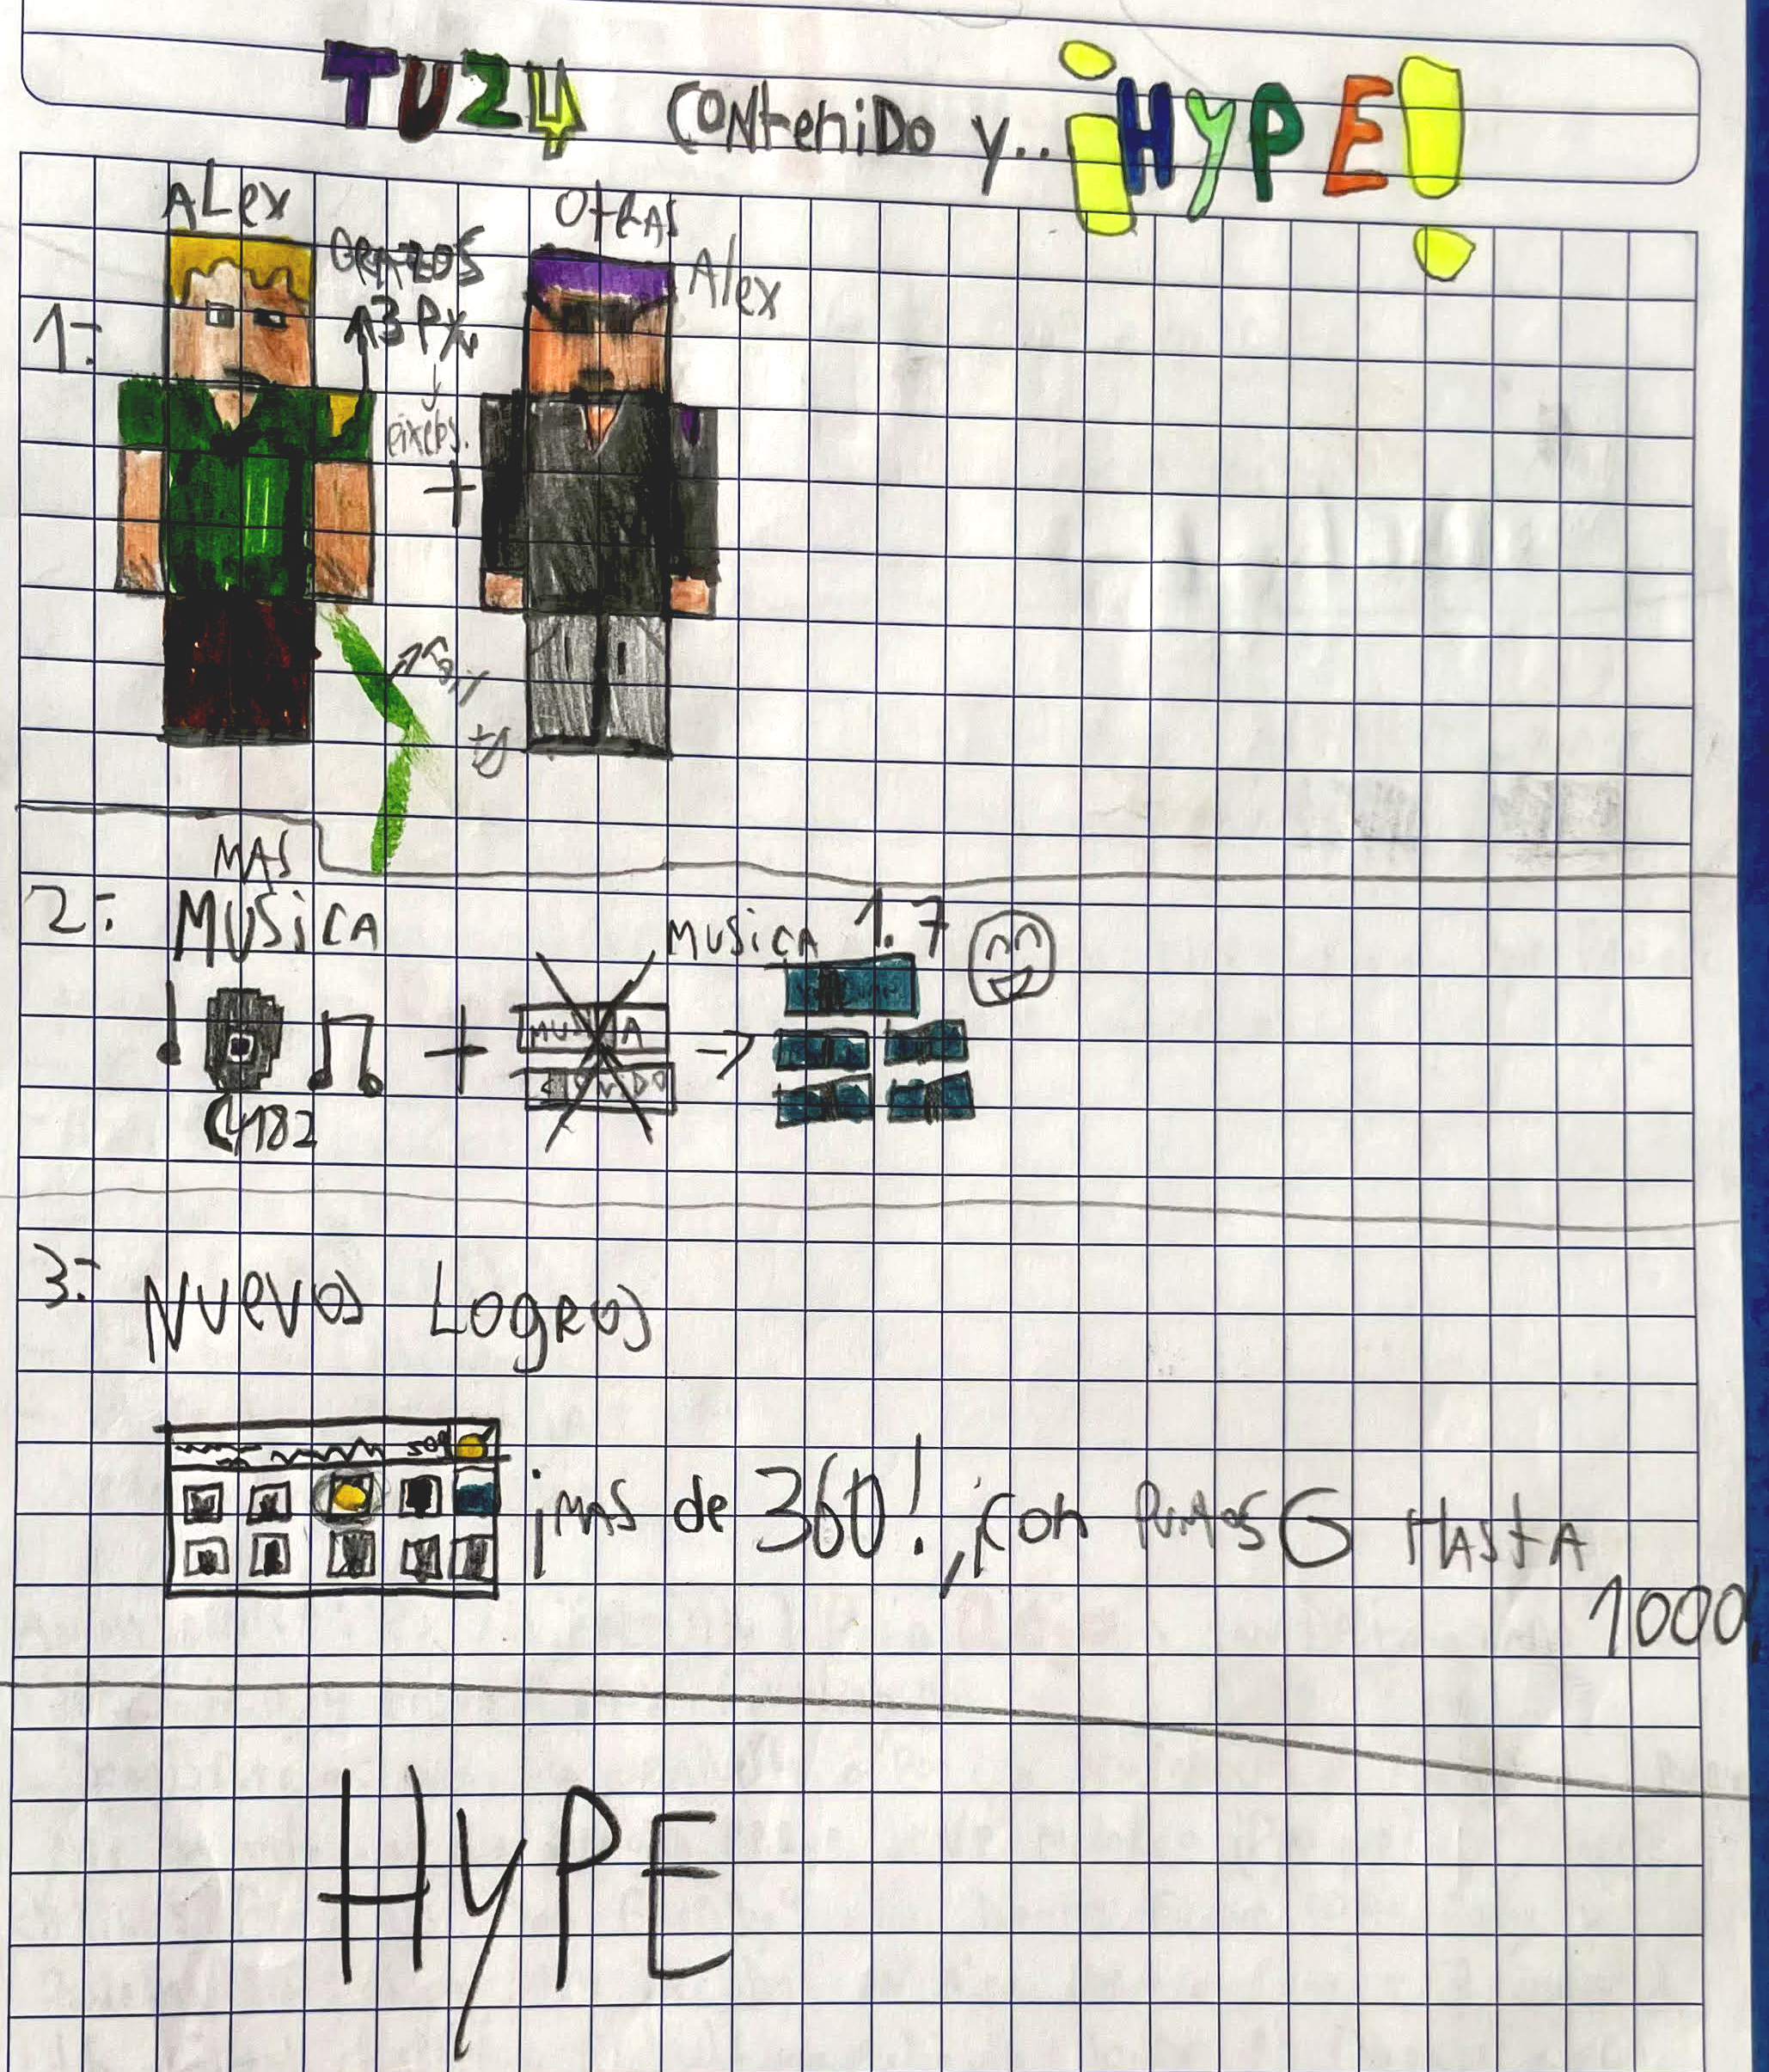 TU24 CONteniDo y.. ¡HYPE!
ALex
OtRAS
Alex
BRAZOS
3 Px
pixeles.
+
1:
MAS
2: MUSiCA
MUSiCA 1.7
C418
+
MUSICA
->
3: NUevos LogRos
¡MAS de 360!, ¡con PuntosG HAStA
1000!
HYPE